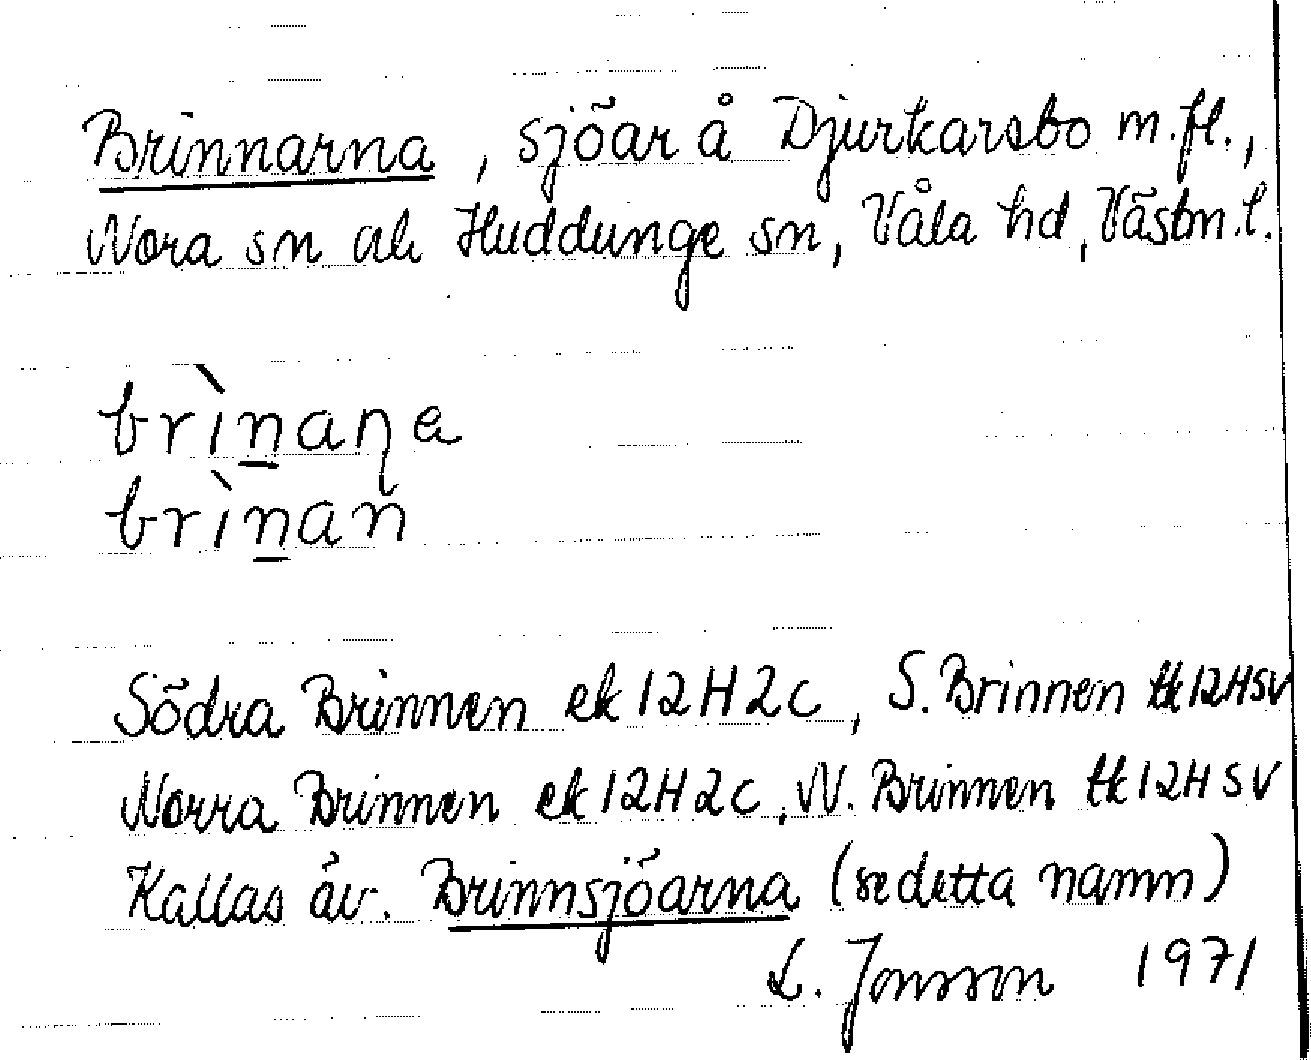 Brinnarna, sjöar å Djurkarsbo m.fl.,
Nora sn ah Huddunge sn, Våla hd, Västm.l.
brìnaṇa
brìnan
Södra Brinnen ek 12H2c, S. Brinnen tk12HSV
Norra Brinnen ek 12H2c, N. Brinnen tk12HSV
Kallas äv. Brinnsjöarna (se detta namn)
L. Jonsson 1971